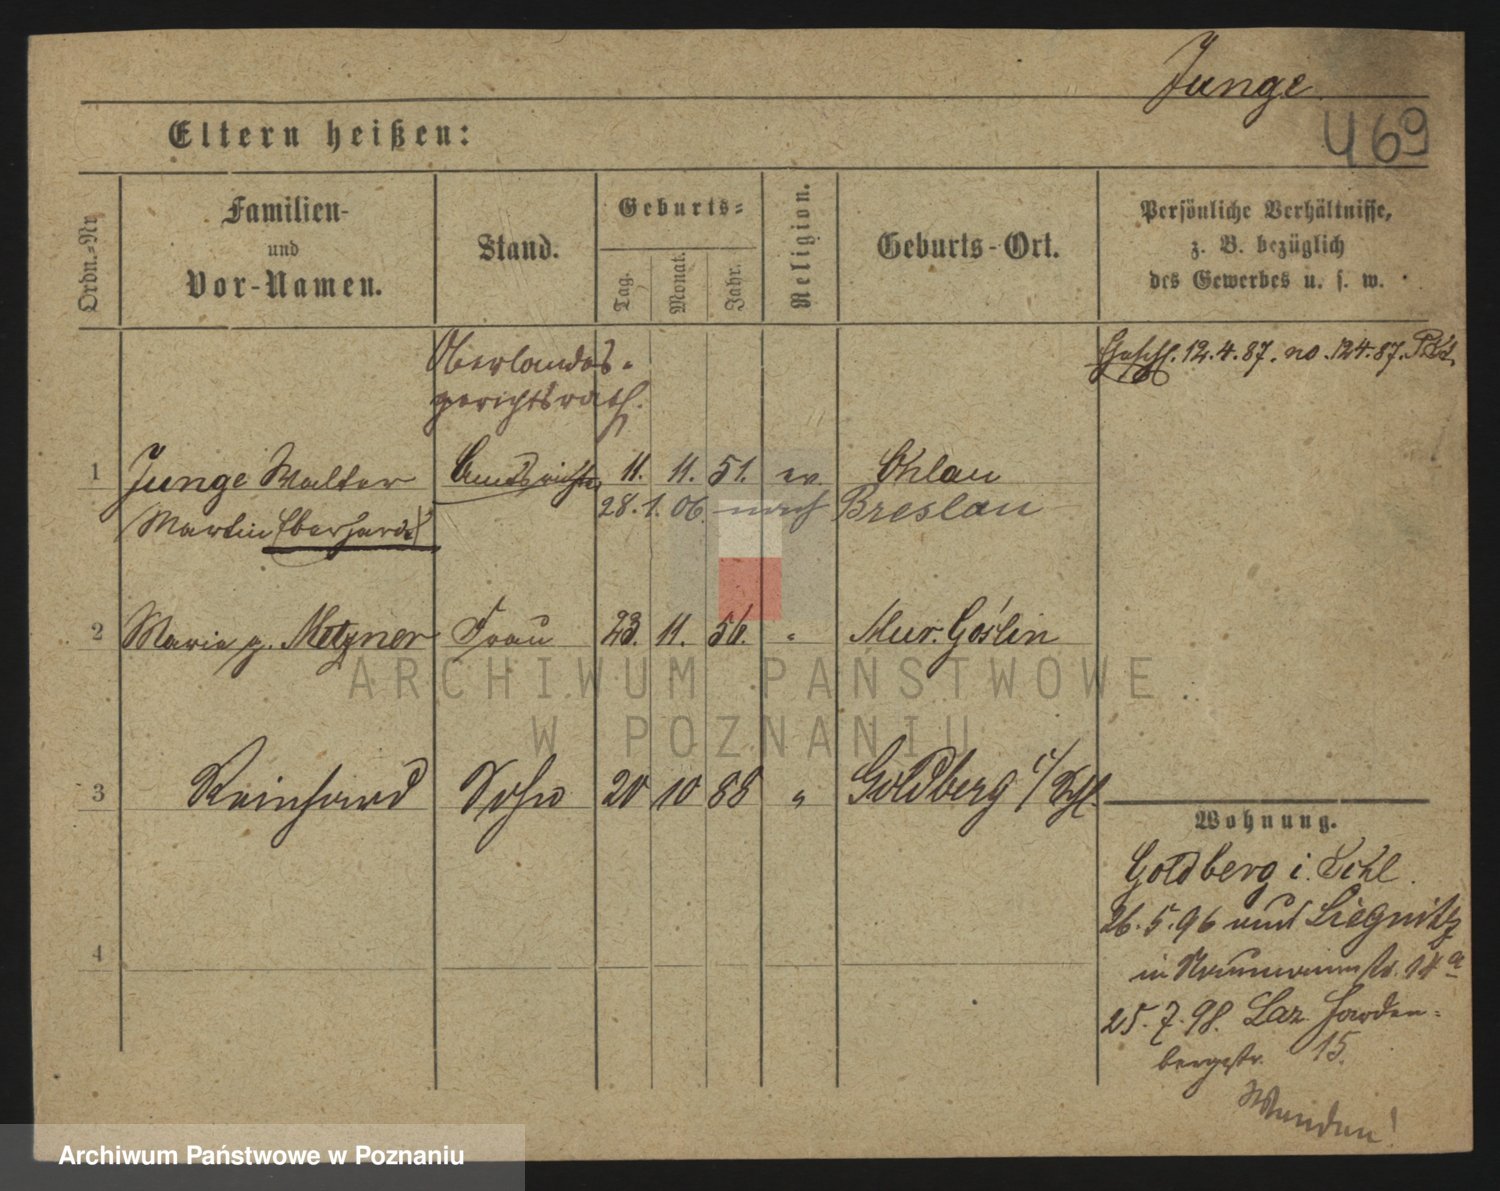 Junge
U 69
Eltern heißen:
Ordn.-Nr
Familien-
und
Vor-Namen.
Stand.
Geburts-
Tag.
Monat.
Jahr.
Religion.
Geburts-Ort.
Persönliche Verhältnisse,
z. B. bezüglich
des Gewerbes u. s. w.
Oberlandes-
gerichtsrath.
12.4.87. no. 124.87.
1 Junge Walter Amtsrichter 11. 11. 51. ev. Ohlau
28. 1. 06. nach Breslau
Martin Eberhard
2 Maria g. Metzner Frau 23. 11. 56. " Mur. Goslin
ARCHIWUM PAŃSTWOWE
W POZNANIU
3 Reinhard Sohn 20 10 88 " Goldberg i/Schl.
Wohnung.
Goldberg i. Schl.
26.5.96 aus Liegnitz
in 14 a
25.7.98. Laz. Harden-
bergstr. 15.
4
Wenden!
Archiwum Państwowe w Poznaniu